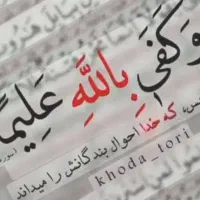 وَكَفَىٰ بِاللَّهِ عَلِيمًا
که خدا احوال بندگانش را میداند
khoda_tori